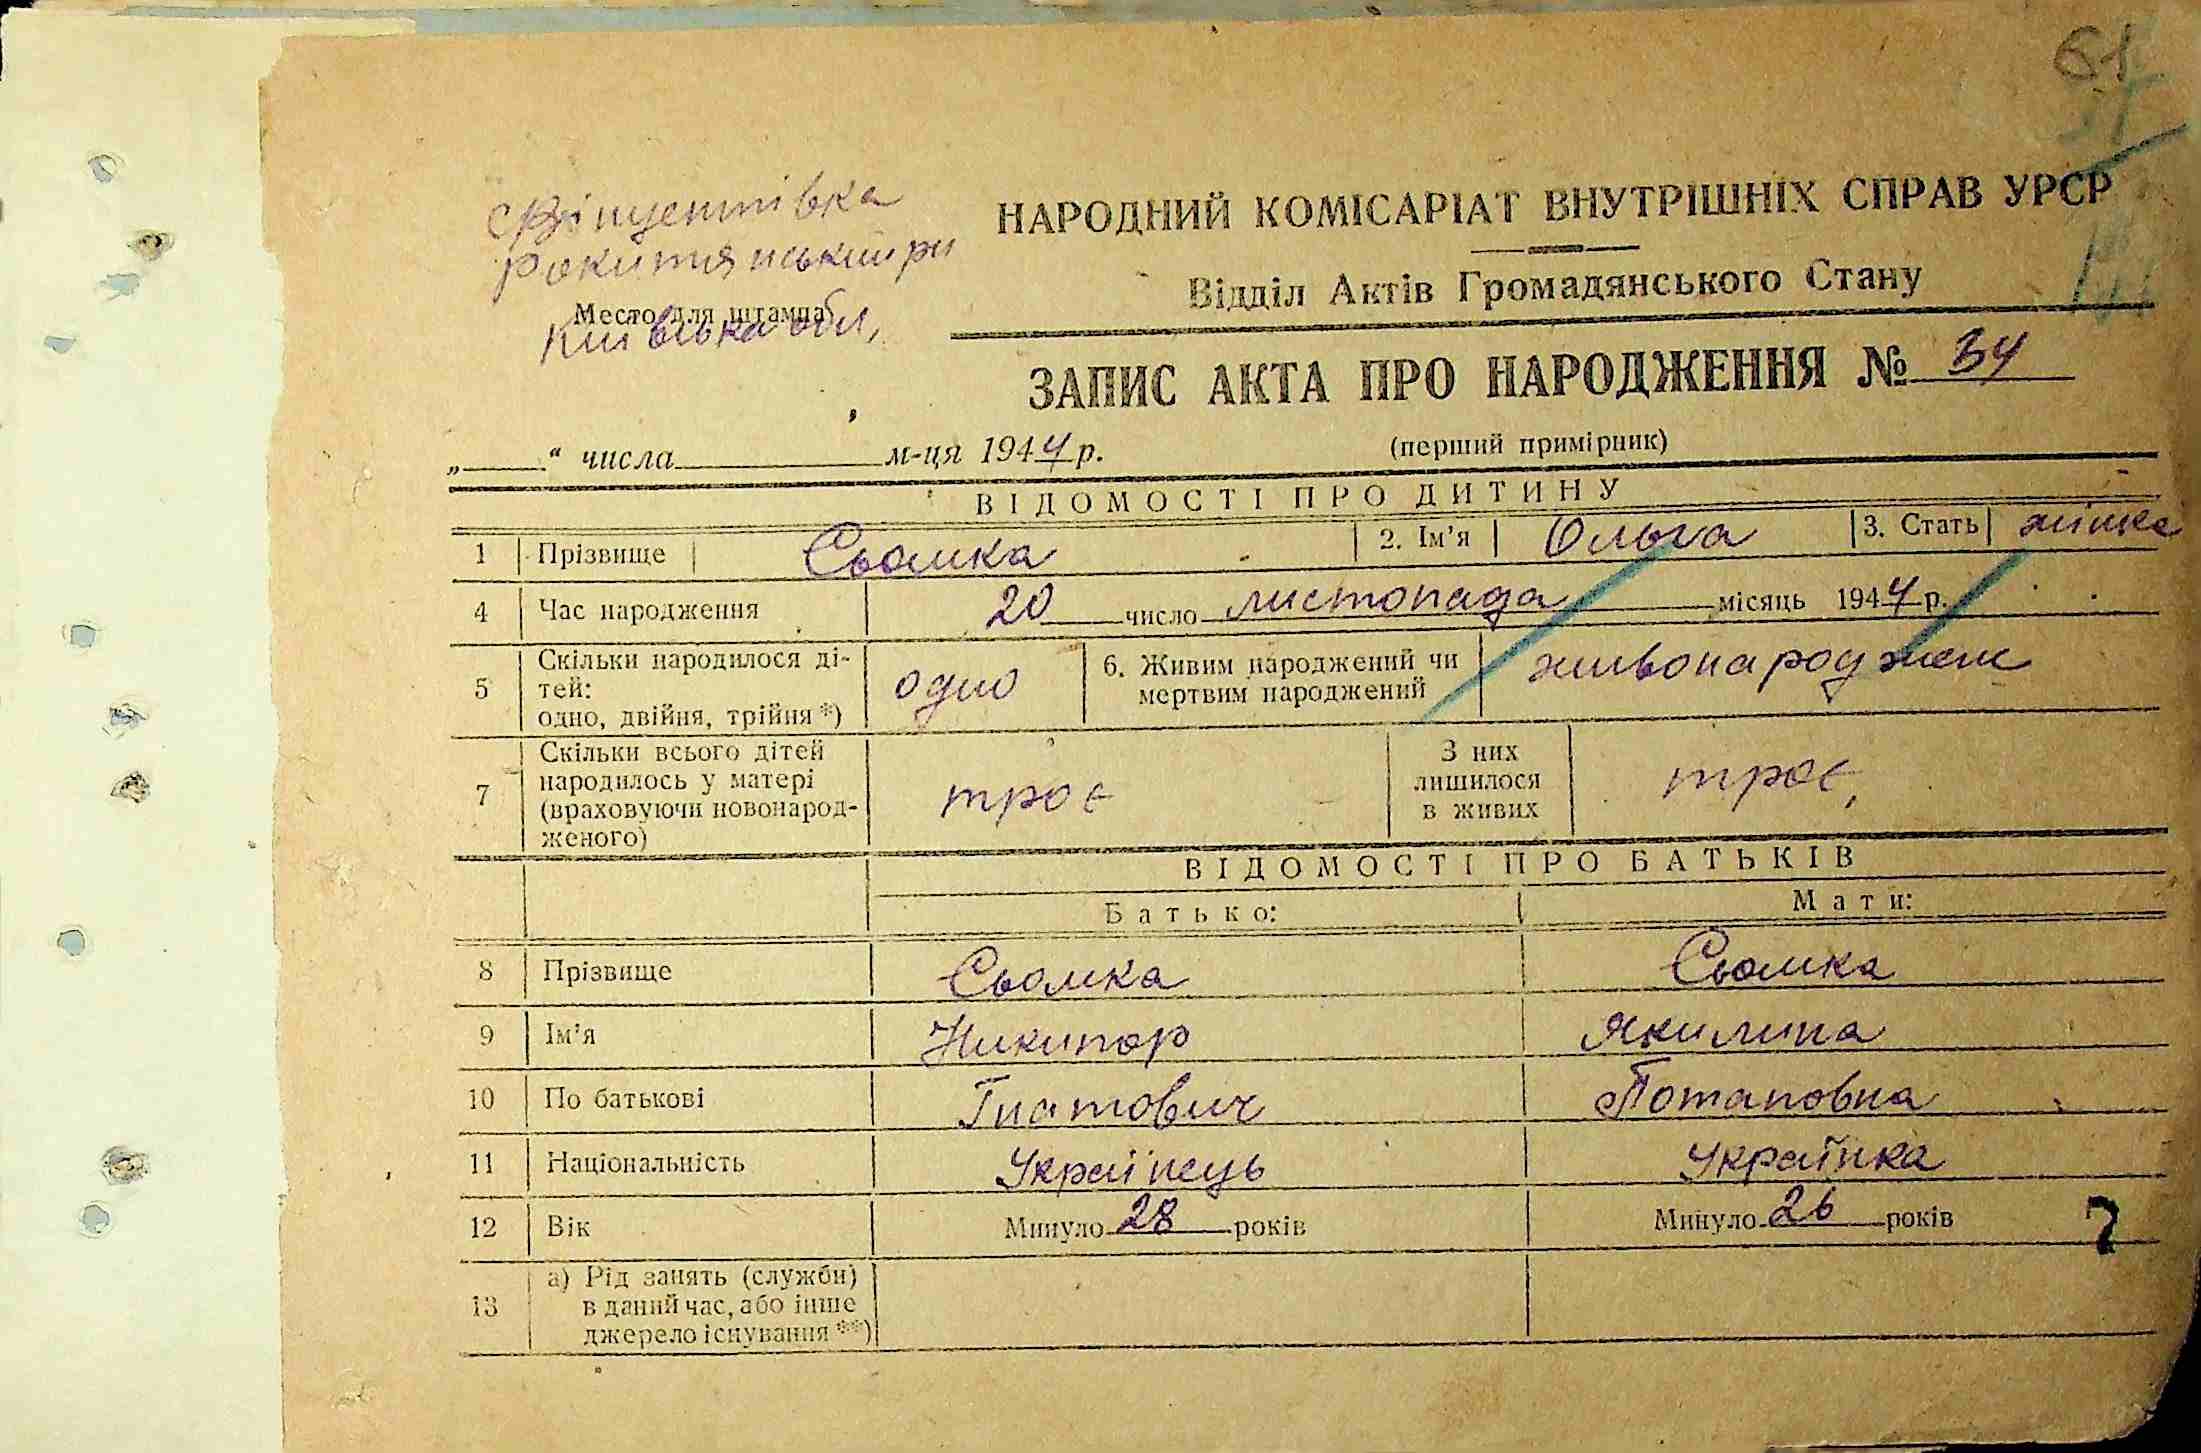 61
с Вінцентівка
Рокитнянський рн
Место для штампа
Київська обл,
НАРОДНИЙ КОМІСАРІАТ ВНУТРІШНІХ СПРАВ УРСР
Відділ Актів Громадянського Стану
ЗАПИС АКТА ПРО НАРОДЖЕННЯ № 34
„ “ числа м-ця 1944 р. (перший примірник)
ВІДОМОСТІ ПРО ДИТИНУ
1 Прізвище Сьомка 2. Ім’я Ольга 3. Стать жіноча
4 Час народження 20 число листопада місяць 1944 р.
5 Скільки народилося ді-
тей:
одно, двійня, трійня *) одно 6. Живим народжений чи
мертвим народжений живонароджен
7 Скільки всього дітей
народилось у матері
(враховуючи новонарод-
женого) троє З них
лишилося
в живих троє,
ВІДОМОСТІ ПРО БАТЬКІВ
Батько: Мати:
8 Прізвище Сьомка Сьомка
9 Ім’я Никипор Якилина
10 По батькові Гнатович Потаповна
11 Національність Українець Українка
12 Вік Минуло 28 років Минуло 26 років
13 а) Рід занять (служби)
в даний час, або інше
джерело існування **)